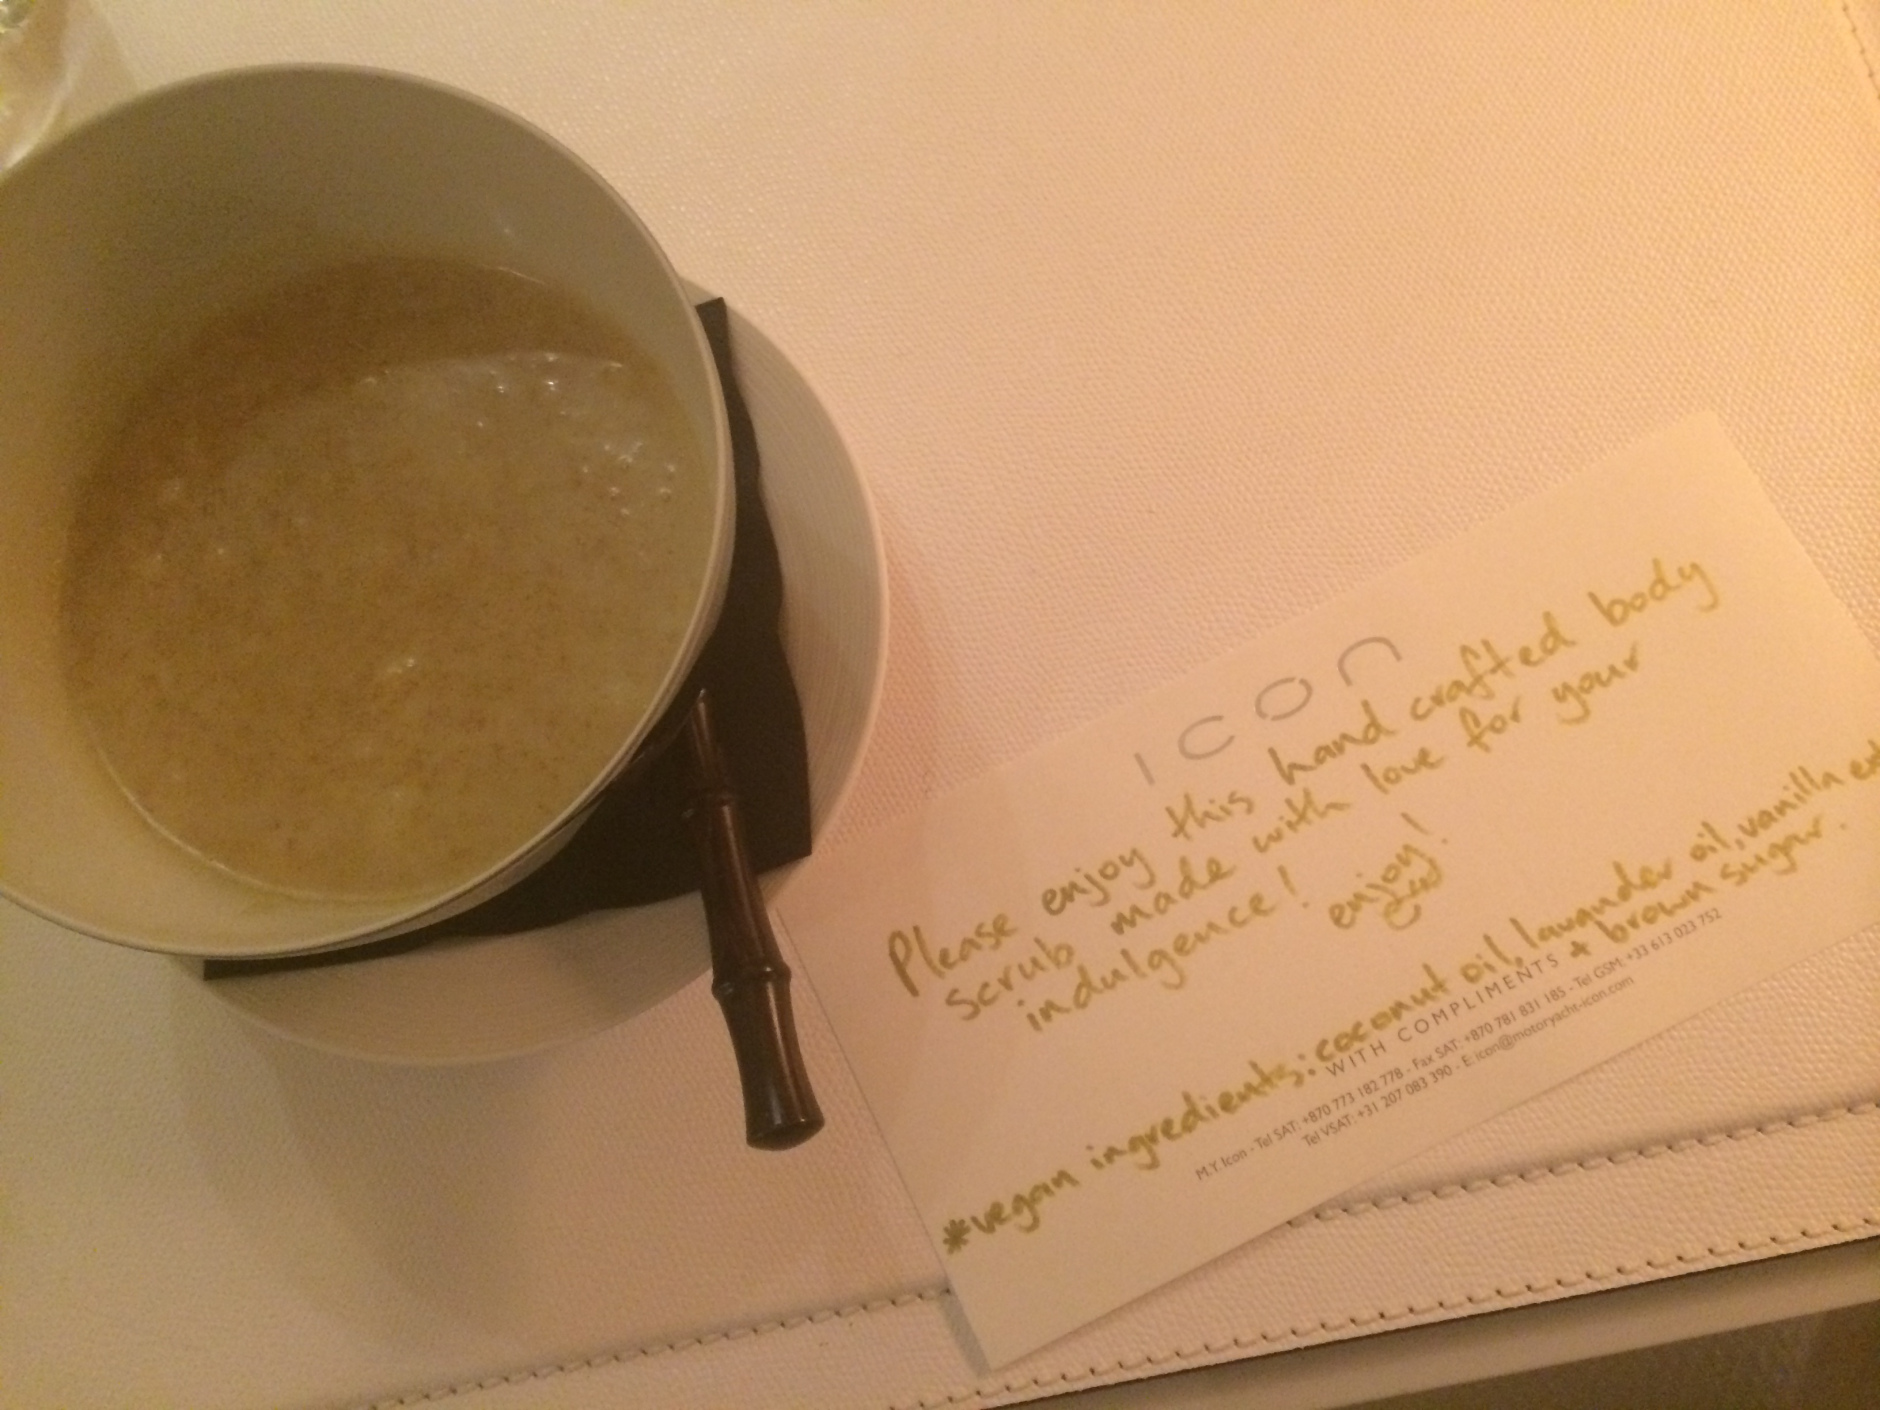 ICON
Please enjoy this hand crafted body
scrub made with love for your
indulgence! enjoy!
*vegan ingredients: coconut oil, lavander oil, vanilla
+ brown sugar.
WITH COMPLIMENTS
M.Y. Icon - Tel SAT: +870 773 182 778 - Fax SAT: +870 781 831 185 - Tel GSM: +33 613 023 752
Tel VSAT: +31 207 083 390 - E: icon@motoryacht-icon.com